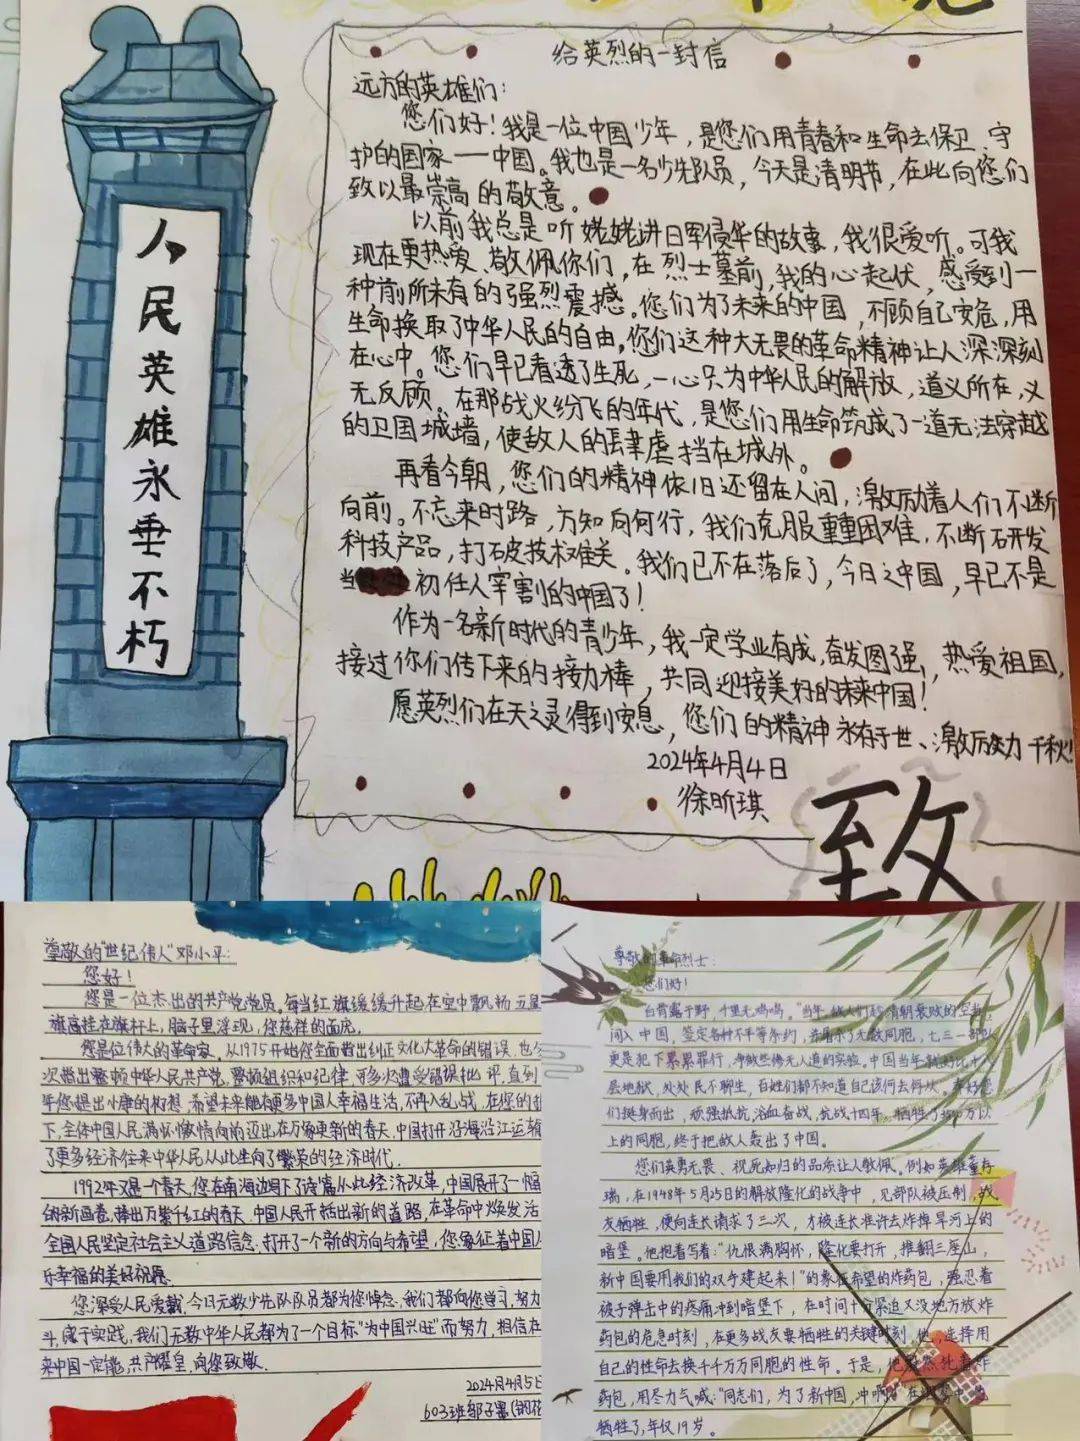 人民英雄永垂不朽
给英烈的一封信
远方的英雄们：
您们好！我是一位中国少年，是您们用青春和生命去保卫、守
护的国家——中国。我也是一名少先队员，今天是清明节，在此向您们
致以最崇高的敬意。
以前我总是听姥姥讲日军侵华的故事，我很爱听。可我
现在更热爱、敬佩你们，在烈士墓前，我的心起伏，感受到一
种前所未有的强烈震撼。您们为了未来的中国，不顾自己安危，用
生命换取了中华人民的自由，您们这种大无畏的革命精神让人深深刻
在心中。您们早已看透了生死，一心只为中华人民的解放，道义所在，义
无反顾。在那战火纷飞的年代，是您们用生命筑成了一道无法穿越
的卫国城墙，使敌人的肆虐挡在城外。
再看今朝，您们的精神依旧还留在人间，激励着人们不断
向前。不忘来时路，方知向何行，我们克服重重困难，不断研发
科技产品，打破技术难关。我们已不在落后了，今日之中国，早已不是
当初任人宰割的中国了！
作为一名新时代的青少年，我一定学业有成，奋发图强，热爱祖国，
接过你们传下来的接力棒，共同迎接美好的未来中国！
愿英烈们在天之灵得到安息，您们的精神永存于世、激励千秋！
2024年4月4日
徐昕琪
致
尊敬的“世纪伟人”邓小平：
您好！
您是一位杰出的共产党党员。每当红旗缓缓升起在空中飘扬五星
旗高挂在旗杆上，脑子里浮现，您慈祥的面庞。
您是位伟大的革命家。从1975开始您全面指出纠正文化大革命的错误，也
次指出整顿中华人民共产党，整顿组织和纪律，可多次遭受错误批评，直到
年您提出小康的构想，希望未来能有更多中国人幸福生活，不再入乱战，在您的
下，全体中国人民满怀激情向前迈出在万象更新的春天，中国打开沿海沿江运输
了更多经济往来中华人民从此走向了繁荣的经济时代.
1992年又是一个春天，您在南海边写下了诗篇从此经济改革，中国展开了一幅
的新画卷，捧出万紫千红的春天.中国人民开括出新的道路，在革命中焕发活
全国人民坚定社会主义道路信念.打开了一个新的方向与希望，您象征着中国人
乐幸福的美好祝愿.
您深受人民爱戴，今日无数少先队队员都为您悼念，我们都向您学习，努力
斗，属于实践，我们无数中华人民都为了一个目标“为中国兴旺”而努力，相信在
来中国一定能，共产耀皇，向您致敬.
2024年4月5日
603班邹子墨(
尊敬的革命烈士：
您们好！
“白骨露于野，千里无鸡鸣。”当年，敌人们趁清朝衰败的空
闯入中国，签定各种不平等条约，并屠杀了无数同胞，七三一部队
更是犯下累累罪行，净做些惨无人道的实验。中国当年就好比十八
层地狱，处处民不聊生，百姓们都不知道自己该何去何从。幸好您
们挺身而出，顽强抵抗，浴血奋战，抗战十四年，牺牲了万以
上的同胞，终于把敌人轰出了中国。
您们英勇无畏、视死如归的品质让人敬佩。例如英雄董存
瑞，在1948年5月25日的解放隆化的战争中，见部队被压制，战
友牺牲，便向连长请求了三次，才被连长准许去炸掉旱河上的
暗堡。他抱着写着：“仇恨满胸怀，隆化要打开，推翻三座山，
新中国要用我们的双手建起来！”的象征希望的炸药包，强忍着
被子弹击中的疼痛冲到暗堡下，在时间十分紧迫又没地方放炸
药包的危急时刻，在更多战友要牺牲的关键时刻，他，选择用
自己的性命去换千千万万同胞的性命。于是，他毅然托着炸
药包，用尽力气喊：“同志们，为了新中国，冲啊！”在
牺牲了，年仅19岁。